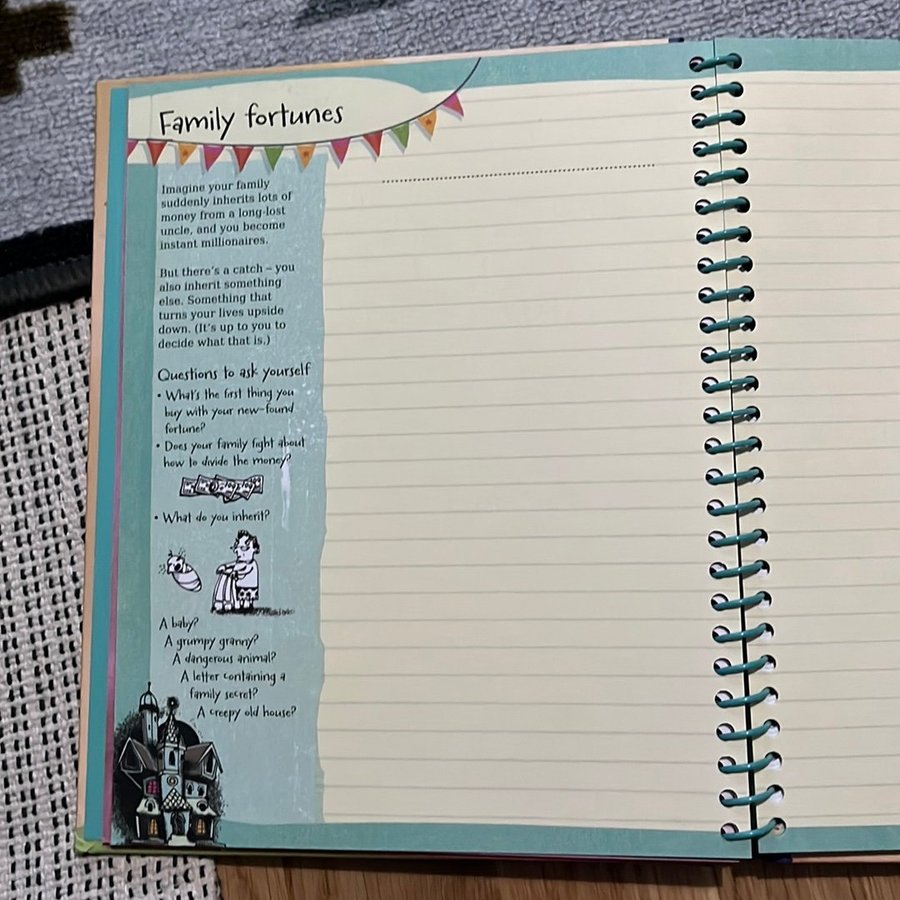 Family fortunes
Imagine your family
suddenly inherits lots of
money from a long-lost
uncle, and you become
instant millionaires.
But there's a catch – you
also inherit something
else. Something that
turns your lives upside
down. (It's up to you to
decide what that is.)
Questions to ask yourself
• What's the first thing you
buy with your new-found
fortune?
• Does your family fight about
how to divide the money?
• What do you inherit?
A baby?
A grumpy granny?
A dangerous animal?
A letter containing a
family secret?
A creepy old house?